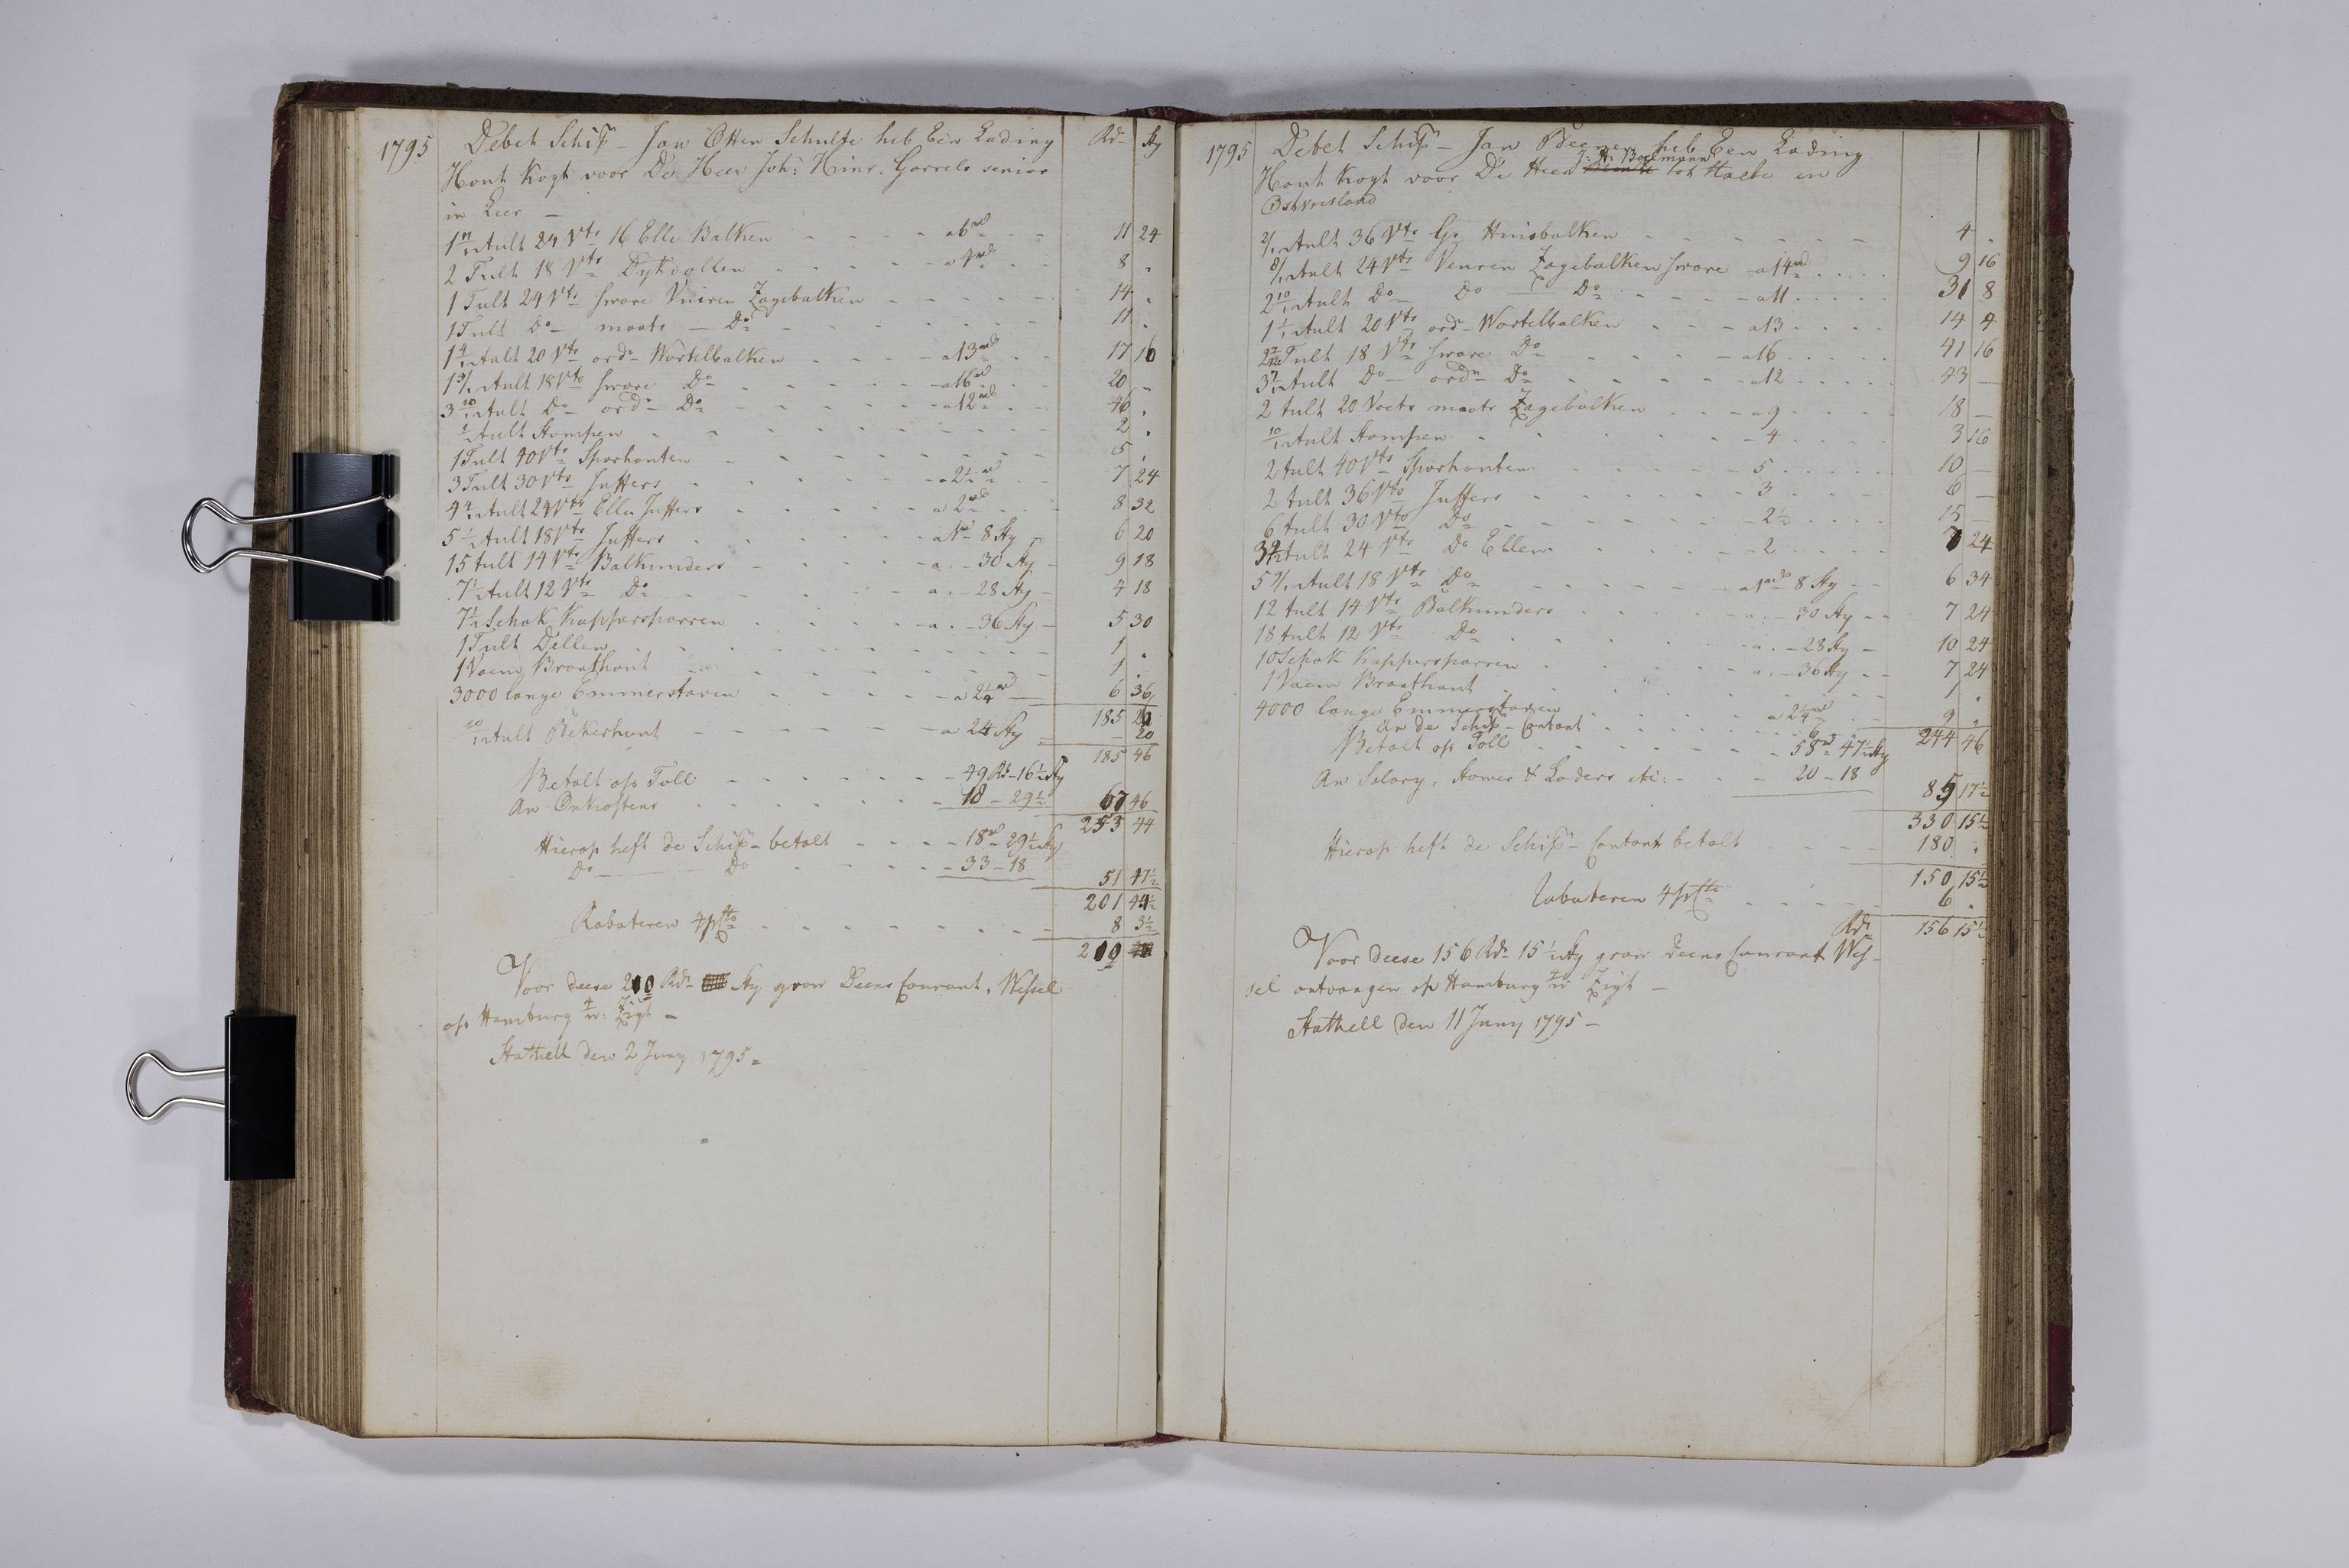 1795 Debet Schip- Jan Otten Schulte heb Een Lading Rd- Sty
Hout kogt voor De Heer Joh: Hinr. Garrels senior
in Leer -
Tult 24 Vts 16 Elle Balken - - - a 6 rd - - 11 24
2 Tult 18 Vts Dykvollen - - - a 4 rd - - 8 .
1 Tult 24 Vts sware Vuiren Zagebalken - - - 14 .
1 Tult Do maats - Do - - - 11 .
Tult 20 Vts ord- Wortelbalken - - - a 13 rd - - 17 16
Tult 18 Vts sware Do - - - a 16 rd - - 20 -
3 10/12 Tult Do ordr Do - - - a 12 rd - - 46 .
1/2 Tult Stompen - - - 2 .
1 Tult 40 Vts Sparhouten - - - 5 .
3 Tult 30 Vts Juffers - - - a 2 1/2 rd - - 7 24
Tult 24 Vts Ellen Juffers - - - a 2 rd - - 8 32
5 1/2 Tult 18 Vts Juffers - - - a 1 rd 8 Sty - 6 20
15 tult 14 Vts Balkunders - - - a . - 30 Sty - 9 18
7 1/2 Tult 12 Vts Do - - - a . - 28 Sty - 4 18
7 1/2 Schok Kappersparren - - - a . - 36 Sty - 5 30
1 Tult Dellen - - - 1 .
1 Vaem Branthout - - - 1 .
3000 lange Emmerstaven - - - a 2 1/4 rd - 6 36
185 26
10/12 Tult Bekerhout - - - a 24 Sty - - 20
185 46
Betalt op Toll - - - 49 Rd - 16 1/2 Sty
An Onkostens - - - 18 - 29 1/2 67 46
253 44
Hierop heft de Schip- betalt - - - 18 rd - 29 1/2 Sty
Do Do - - - 33 - 18 51 47 1/2
201 44 1/2
Rabateren 4 pCto - - - 8 3 1/2
210
Voor deese 210 Rd- Sty grow Deens Courant, Wessel
op Hamburg Zigt -
Stathell den 2 Juny 1795 =
1795 Debet Schip- Jan heb Een Lading
J: H: Bolmann
Hout kogt voor De Heer tot Halte in
Ostvrisland
Tult 36 Vts Gr Huisbalken - - - 4 .
8/12 Tult 24 Vts Veuren Zagebalken sware - a 14 rd - - 9 16
2 10/12 Tult Do Do - Do - - - a 11 - - 31 8
Tult 20 Vts ord- Wortelbalken - - - a 13 - - 14 4
Tult 18 Vts sware Do - - - a 16 - - 41 16
Tult Do ordn Do - - - a 12 - - 43 -
2 tult 20 Voets maats Zagebalken - - - a 9 - - 18 -
10/12 Tult Stompen - - - 4 - - 3 16
2 tult 40 Vts Sparhouten - - - 5 - - 10 -
2 tult 36 Vts Juffers - - - 3 - - 6 -
6 tult 30 Vts Do - - - 2 1/2 - - 15 -
Tult 24 Vts Do Ellen - - - 2 - - 7 24
5 9/12 Tult 18 Vts Do - - - a 1 rd 8 Sty - - 6 34
12 tult 14 Vts Balkunders - - - a . - 30 Sty - - 7 24
18 tult 12 Vts Do - - - a . - 28 Sty - 10 24
10 Schok Kappersparren - - - a . - 36 Sty - - 7 24
1 Vaem Branthout - - - 1 .
4000 lange Emmerstaven - - - a 2 1/4 rd - - 9 .
244 46
An de Schip- Contant
Betalt op Toll - - - 47 1/2 Sty
An Salary, Stomer & Laders etc: - - - 20 - 18 85 17 1/2
330 15 1/2
Hierop heft de Schip- Contant betalt - - - 180 .
150 15 1/2
Rabateren 4 pCto - - - 6 .
Rd- 156 15 1/2
Voor deese 156 Rd- 15 1/2 Sty grow Deens Courant Wes-
sel ontvangen op Hamburg Zigt -
Stathell den 11 Juny 1795 -